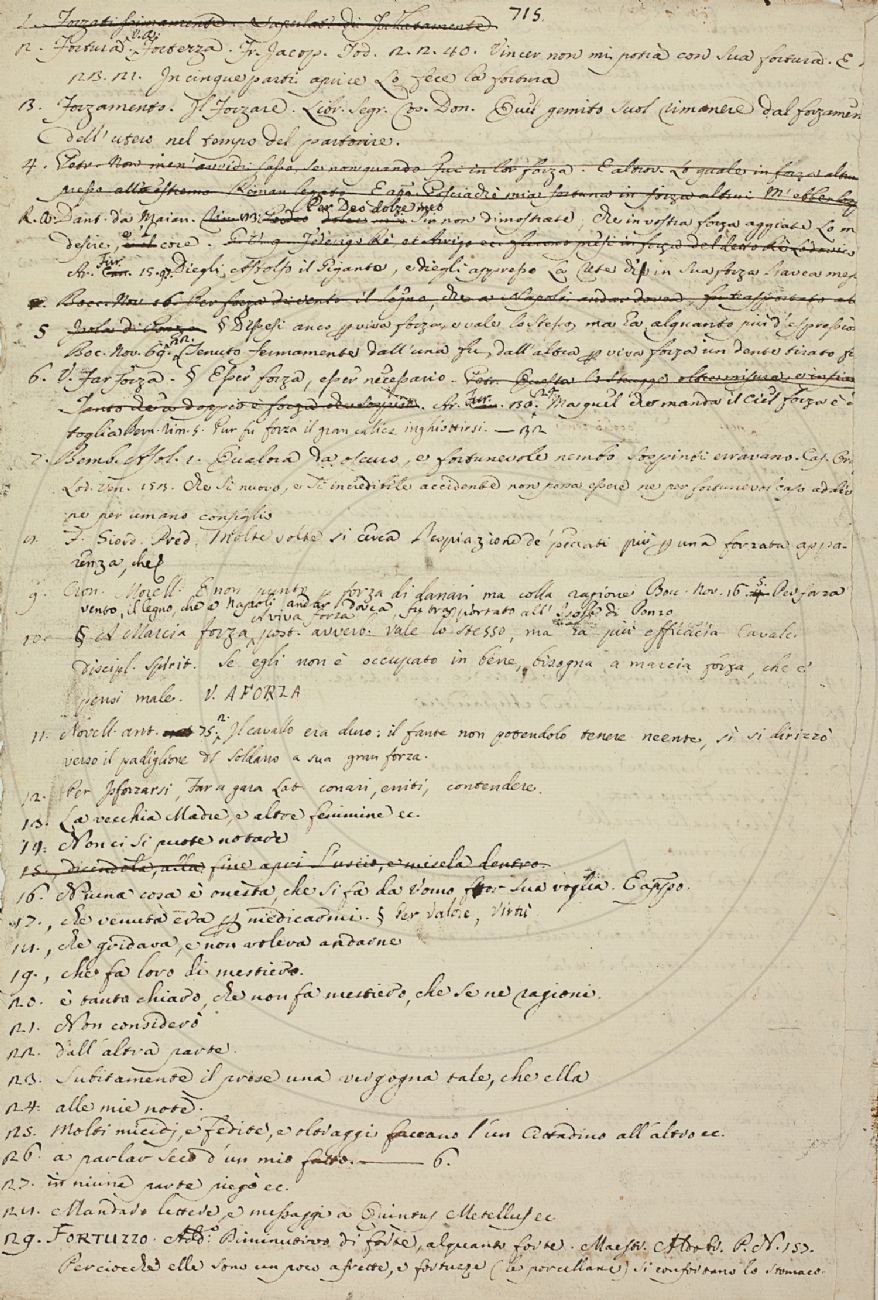 715.
1. Forzatissimamente. Superlat. di Forzatamente
2. Fortura. Fortezza. Fr. Jacop. Tod. 2. 2. 40. Vincer non mi potria con sua fortura. E
2. 13. 21. In cinque parti aprire Lo fece la fortura
3. Forzamento. Il Forzare. Libr. Segr. Cos. Don. Quel gemito suol rimanere dal forzamen
dell'utero nel tempo del partorire.
4. Petr. Non men'avvidi lasso, se non quando fui in lor forza. E altrov. Lo quale in forza altru
presso all'estremo E app. Posciachè mia fortuna in forza altrui M'ebbe
R. A. Dant. da Maian. Per Deo dolze meo Sir non dimostrate, Che in vostra forza aggiate Lo m
desire, e 'l core.
Ar. Fur. 15. Diegli Astolfo il Gigante, e diegli appresso La Rete in sua forza l'avea mes
Bocc. Nov. 16. Per forza di vento il legno, che a Napoli andar dovea, fu trasportato al
5 Isola di Ponzo. § Dicesi anco per viva forza, e vale lo stesso, ma ha alquanto più d'espressio
Boc. Nov. 69. Tenuto fermamente dall'una fu, dall'altra per viva forza un dente tirato
6. V. Far forza. § Esser forza, esser necessario.
Ar. Fur. Ma quel che manda il Ciel forza è
toglia Bern. Rim. 5. Pur fu forza il gran calice inghiottirsi. — 32
7. Bemb. Asol. 1. Qualora da oscuro, e fortunevole nembo sospinti erravano.
Lod. Ven. 1513. Che sì nuovo, e sì incredibile accidente non possa essere nè per fortunevol caso
nè per umano consiglio
8. F. Giord. Pred. Molte volte si cerca l'espiazione de' peccati più per una forzata appa-
renza, che
9. Cron. Morell. E non punto per forza di danari ma colla ragione Boc. Nov. 16. 5. Per forza
vento, il legno, che a Napoli andar dovea, fu trasportato all' Isola di Ponzo
10. § A Marcia forza, post. avverb. vale lo stesso, ma ha più efficacia Cavalc.
Discipl. Spirit. Se egli non è occupato in bene, bisogna a marcia forza, che e'
pensi male. V. A FORZA
11. Novell. ant. 75. Il cavallo era duro; il fante non potendolo tenere neente, sì si dirizzò
verso il padiglione del Soldano a sua gran forza.
12. Per Isforzarsi, Far a gara Lat. conari, eniti, contendere.
13. La vecchia Madre, e altre femmine ec.
14. Non ci si puote notare
15. , dicendola, alla fine aprì l'uscio, e misela dentro.
16. Niuna cosa è onesta, che si fa da Uomo fuor sua voglia. E appo.
17. , che venuta era per medicarmi. § Per Valore, Virtù
18. , che gridava, e non voleva andarne
19. , che fa loro di mestiero.
20. è tanto chiaro, che non fa mestiero, che se ne ragioni.
21. Non considerò
22. dall'altra parte.
23. Subitamente il prese una vergogna tale, che ella
24. alle mie note.
25. Molti micidj, e fedite, e oltraggi faceano l'un Cittadino all'altro ec.
26. a parlar seco d'un mio fatto. — 6.
27. in niuna parte piegò ec.
28. Mandaro lettere, e messaggi a Quintus Metellus ec
29. FORTUZZO. Add. Diminutivo di forte, alquanto forte. Maestr. Aldobr. P. N. 157.
Perciocchè elle sono un poco afrette, e fortuzze (le porcellane) si confortano lo stomaco.